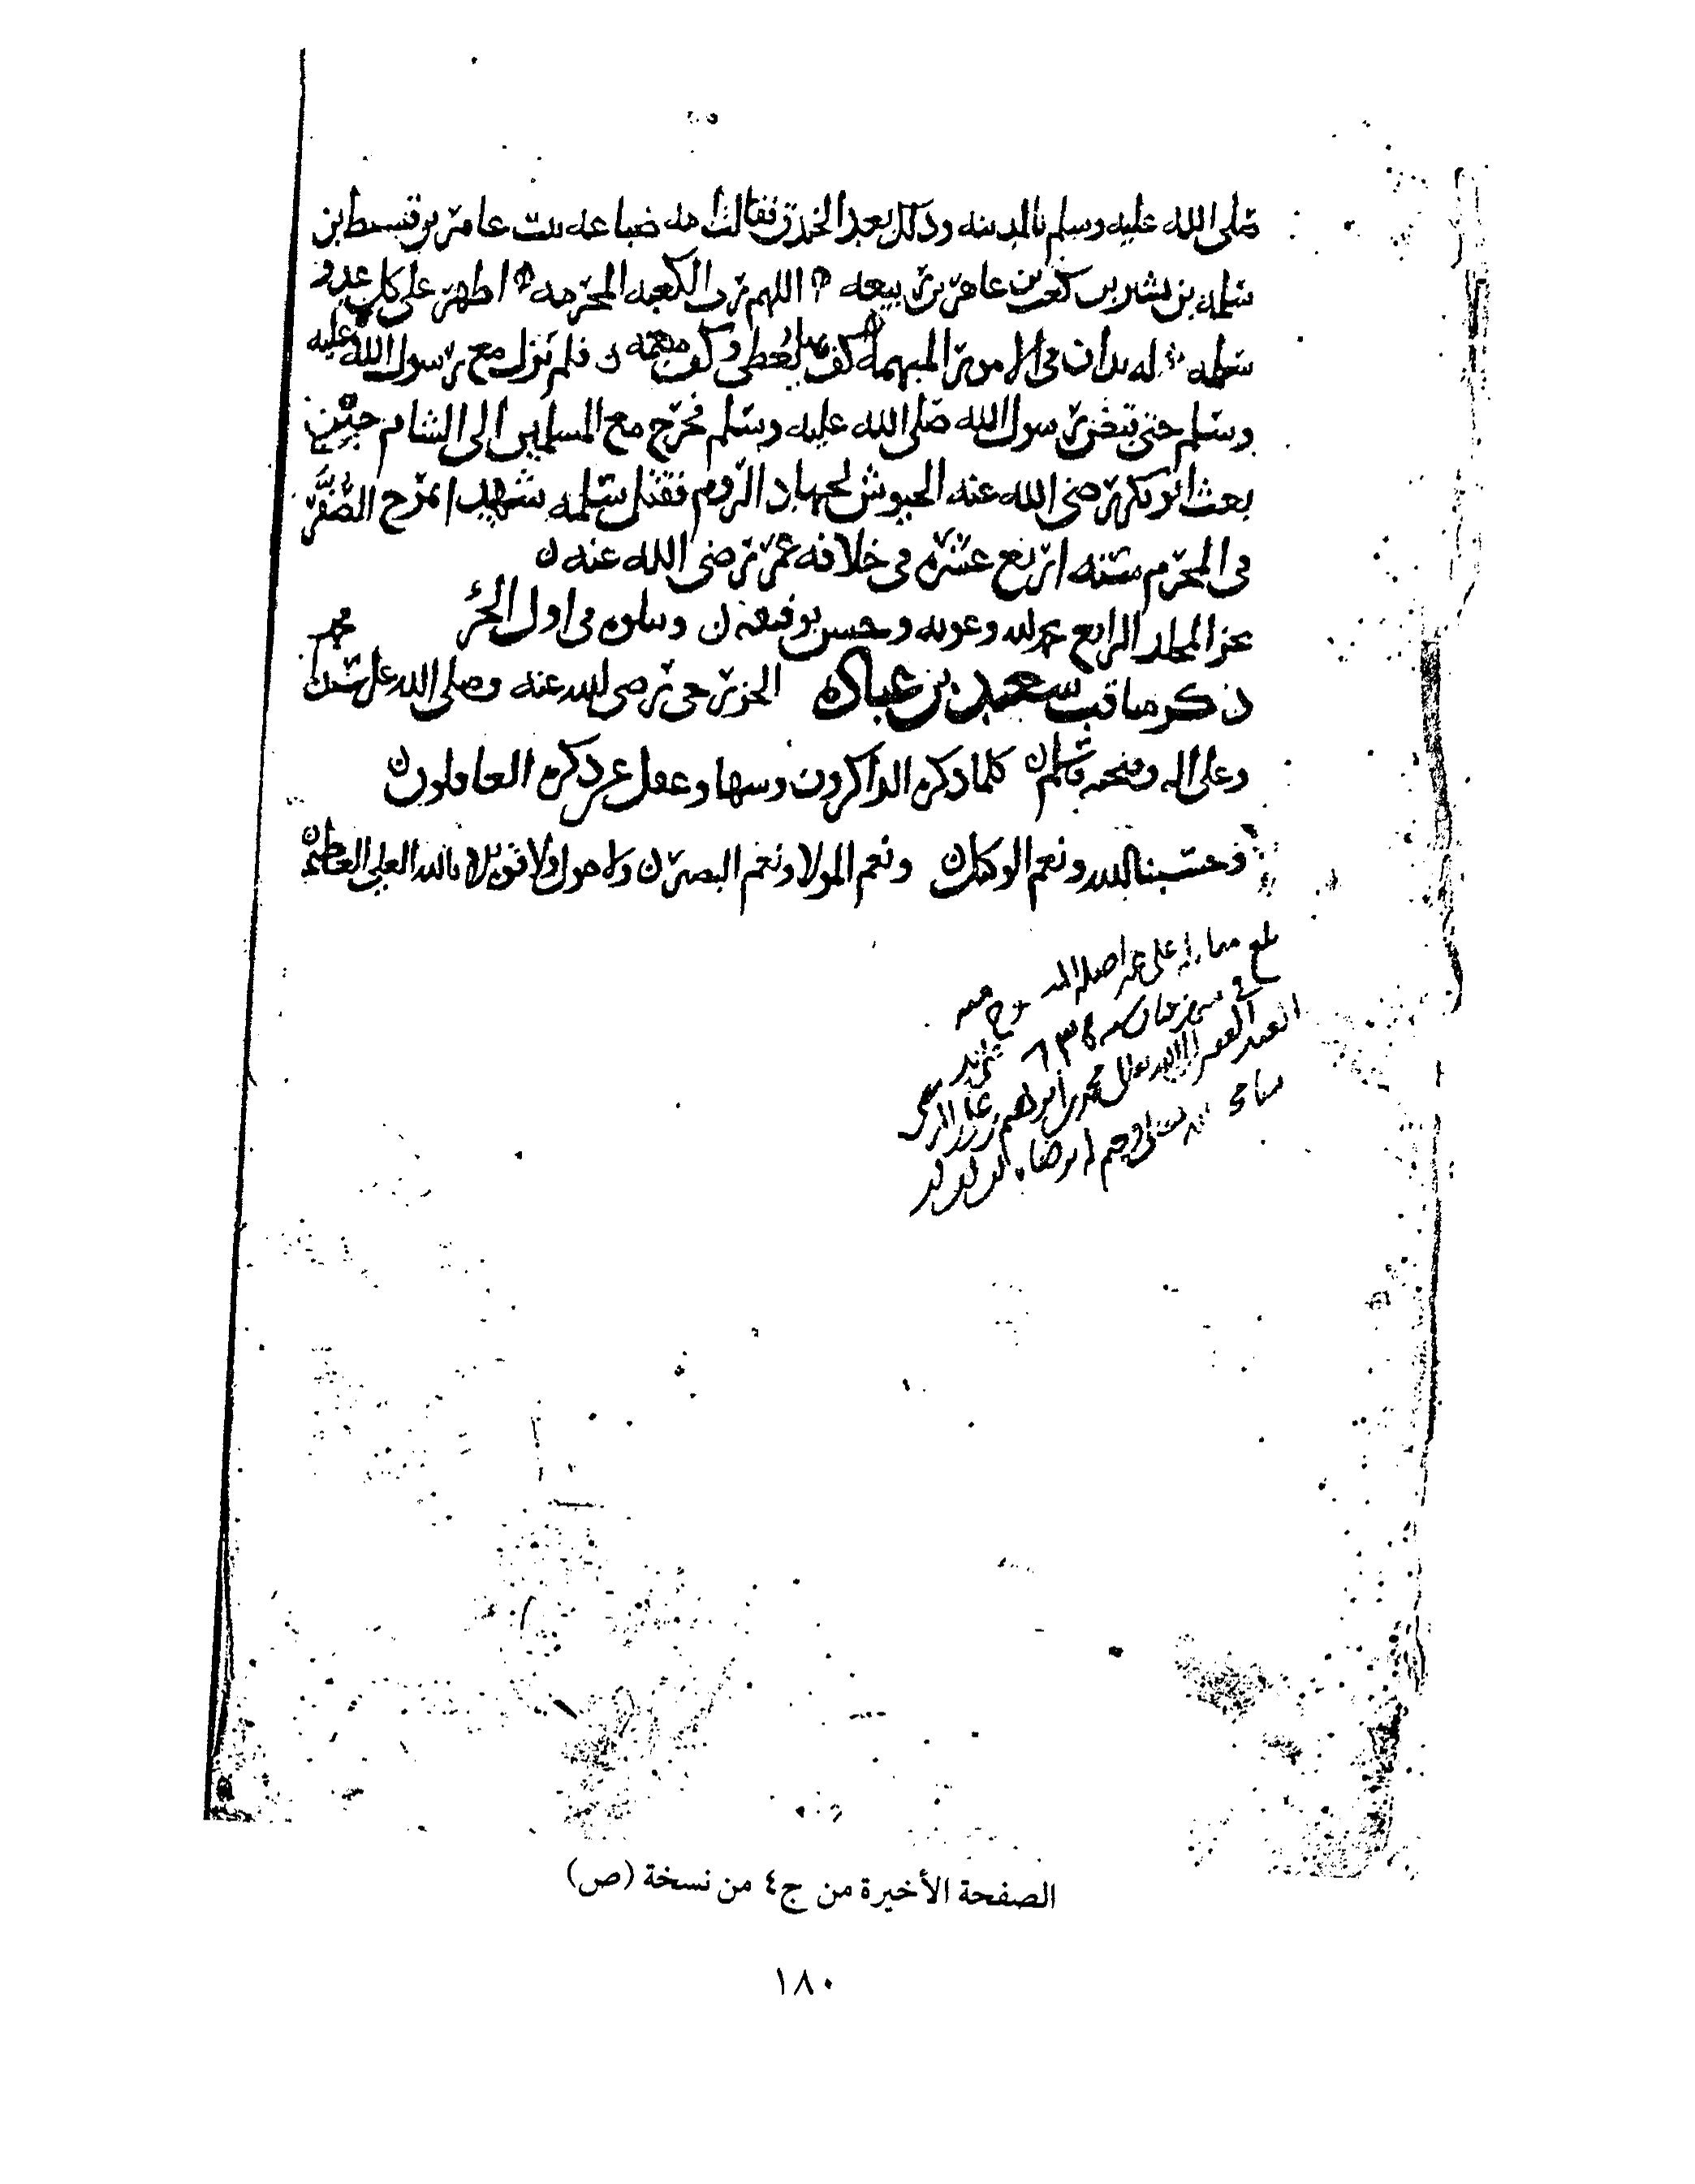 صلى الله عليه وسلم بالمدينه وذلك بعد الخندق فقالت امه ضباعه بنت عامر بن قسط بن
سلمه بن بشير بن كعب بن عامر بن ربيعه اللهم رب الكعبه المحرمه اظهر على كل عدو
سلمه له يدان في الامور المبهمه كف بها يعطى وكف منعمه فلم يزل مع رسول الله عليه
وسلم حتى قبض رسول الله صلى الله عليه وسلم فخرج مع المسلمين الى الشام حين
بعث ابو بكر رضى الله عنه الجيوش لجهاد الروم فقتل سلمه شهيدا بمرج الصفر
في المحرم سنه اربع عشره في خلافه عمر رضى الله عنه
نجز المجلد الرابع بحمد لله وعونه وحسن توفيقه ويتلوه في اول الجزء
ذكر مناقب سعد بن عباده الخزرجي رضى الله عنه وصلى الله على سيدنا محمد
وعلى اله وصحبه وسلم كلما ذكره الذاكرون وسها وغفل عن ذكره الغافلون
وحسبنا الله ونعم الوكيل ونعم المولا ونعم النصير ولا حول ولا قوة الا بالله العلي العظيم
بلغ مقابله على اصله
سنه ٦٣٤
العبد الفقير الى الله محمد بن ابرهيم بن
الصفحة الأخيرة من ج٤ من نسخة (ص)
١٨٠